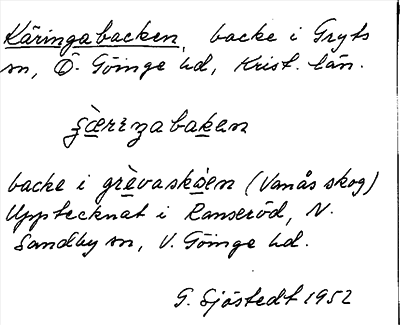 Käringabacken, backe i Gryts
sn, Ö. Göinge hd, Krist. län.
backe i grèvaskòen (Vanås skog)
Upptecknat i Ranseröd, N.
Sandby sn, V. Göinge hd.
G. Sjöstedt 1952